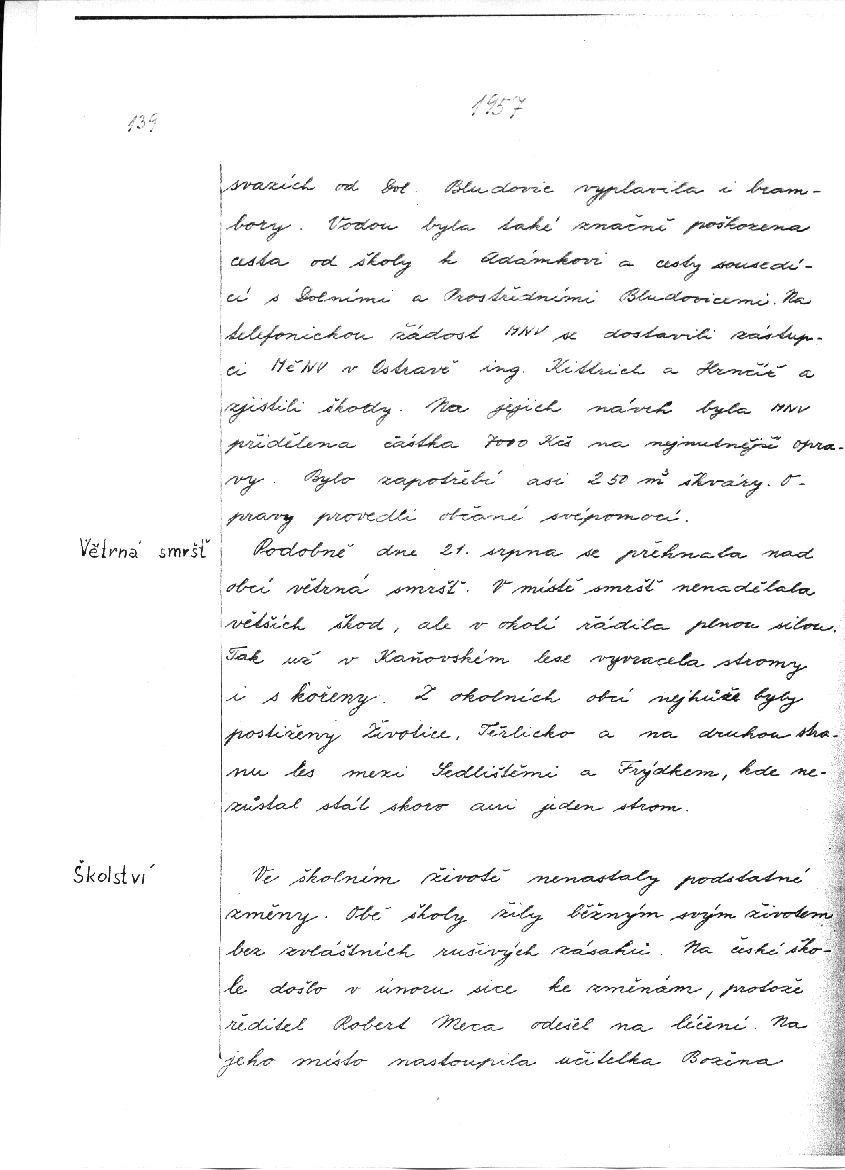 1957
139
svazích od Dol. Bludovic vyplavila i bram-
bory. Vodou byla také značně poškozena
cesta od školy k Adámkovi a cesty sousedí-
cí s Dolními a Prostředními Bludovicemi. Na
telefonickou žádost MNV se dostavili zástup-
ci MěNV v Ostravě ing. Kittrich a Hrnčíř a
zjistili škody. Na jejich návrh byla MNV
přidělena částka 7000 Kčs na nejnutnější opra-
vy. Bylo zapotřebí asi 250 m³ škváry. O-
pravy provedli občané svépomocí.
Větrná smršť
Podobně dne 21. srpna se přehnala nad
obcí větrná smršť. V místě smršť nenadělala
větších škod, ale v okolí řádila plnou silou.
Tak už v Kaňovském lese vyvracela stromy
i s kořeny. Z okolních obcí nejhůře byly
postiženy Životice, Těrlicko a na druhou stra-
nu les mezi Sedlištěmi a Frýdkem, kde ne-
zůstal stát skoro ani jeden strom.
Školství
Ve školním životě nenastaly podstatné
změny. Obě školy žily běžným svým životem
bez zvláštních rušivých zásahů. Na české ško-
le došlo v únoru sice ke změnám, protože
ředitel Robert Meca odešel na léčení. Na
jeho místo nastoupila učitelka Božena